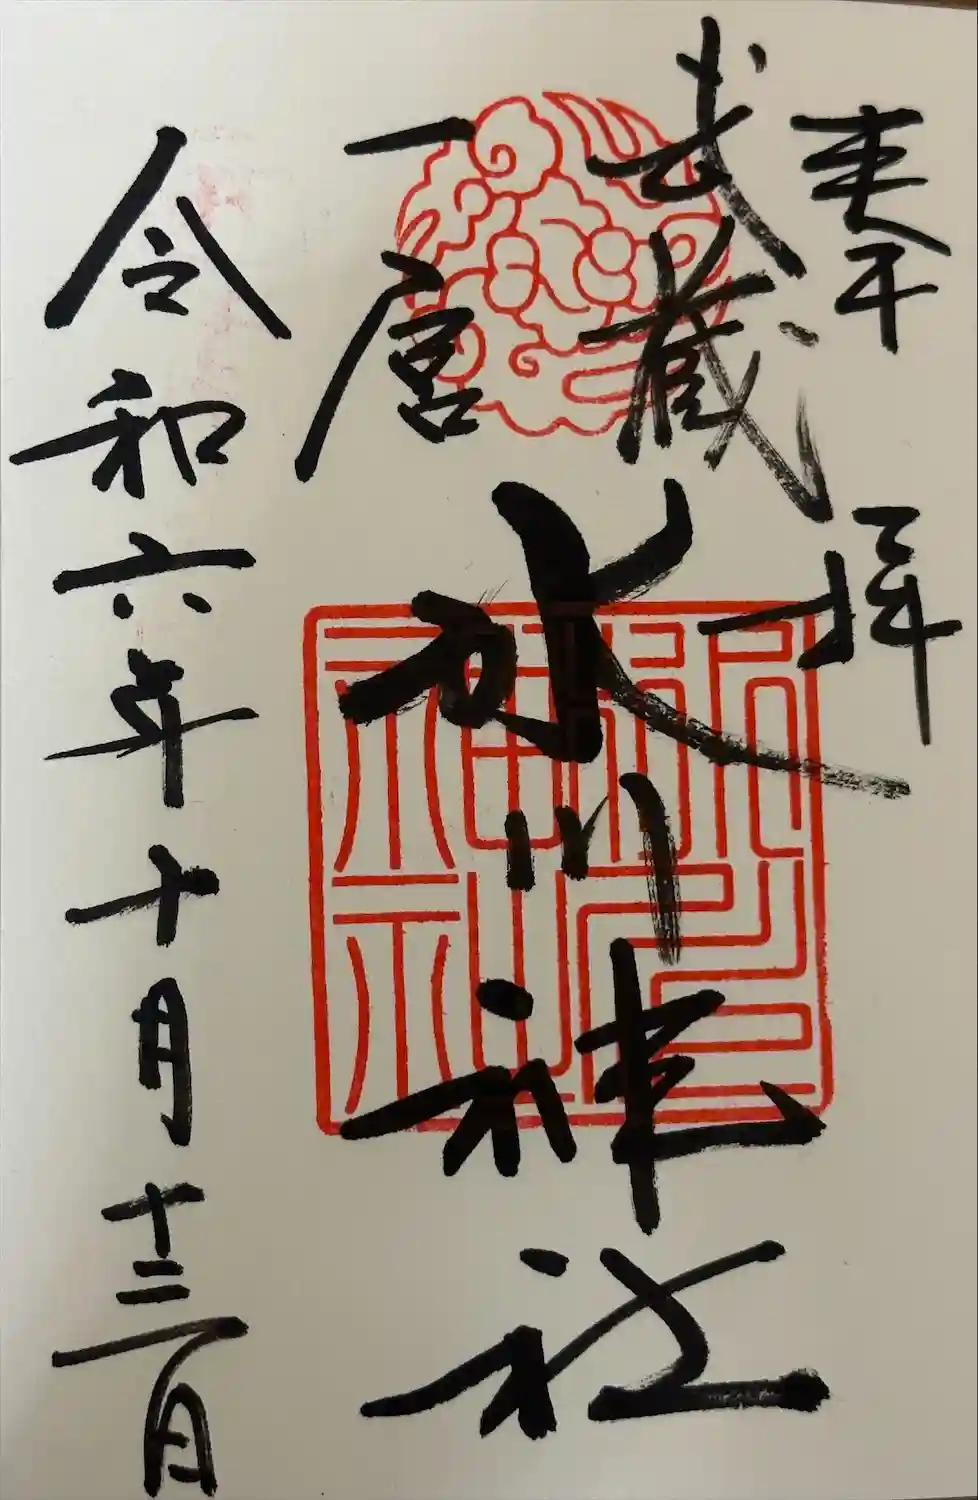 奉拝
武蔵
一宮
氷川神社
令和六年十月十三日